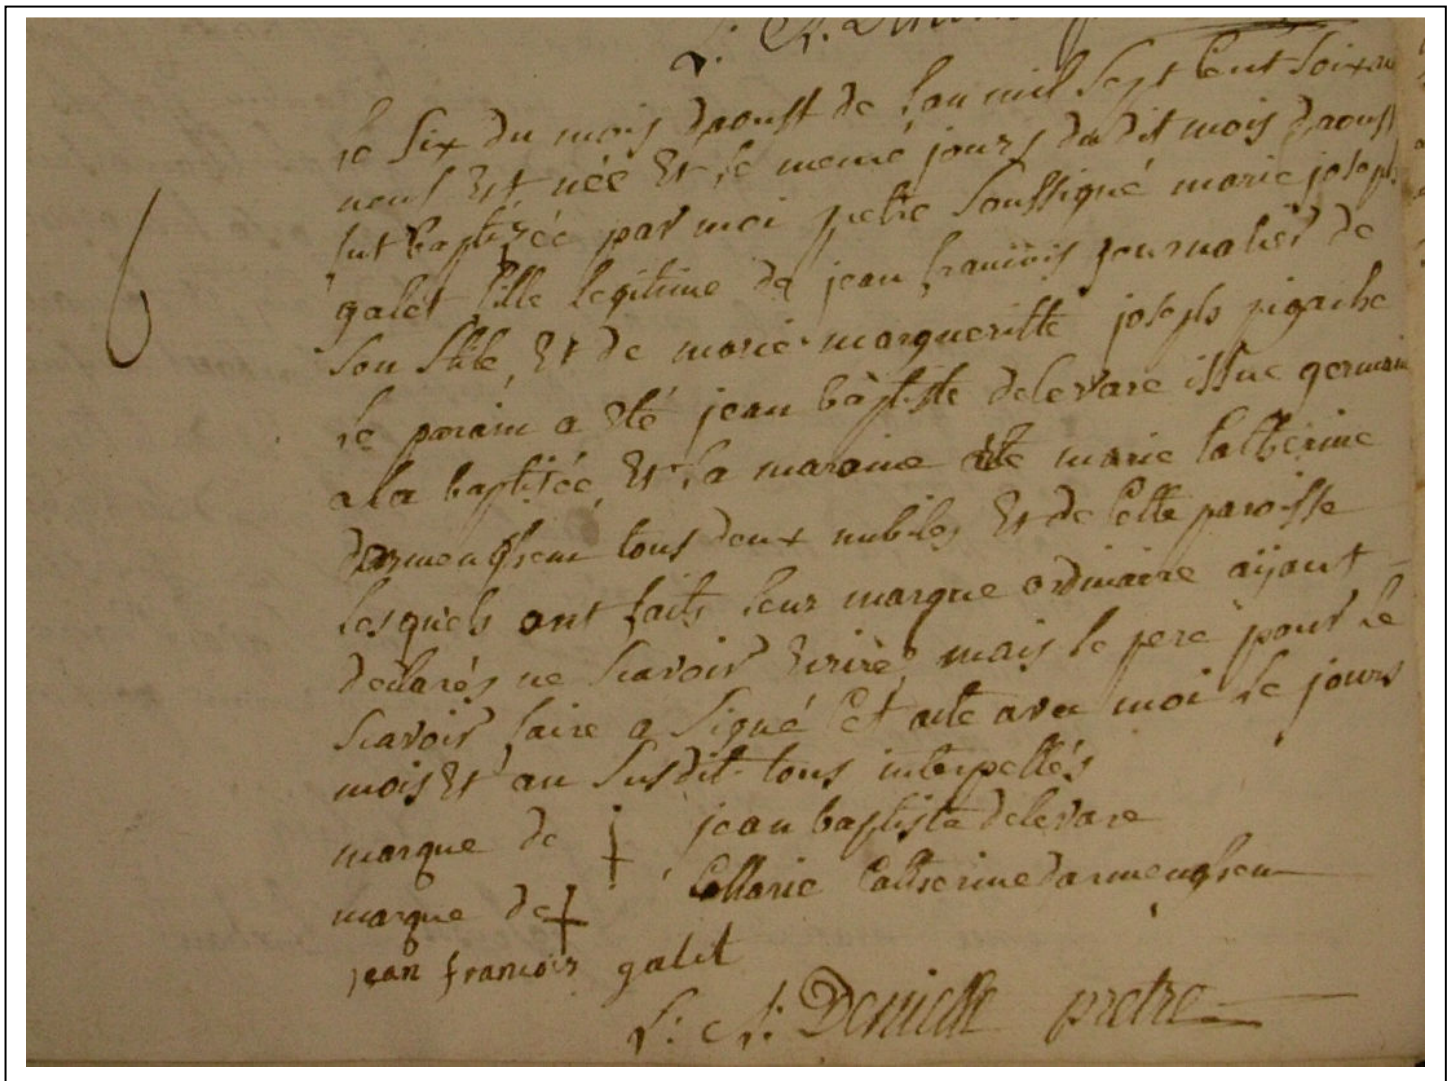 6
le Six du mois daoust de l'an mil Sept Cent Soixan
neuf Est née Et le meme jours du dit mois daoust
fut baptisée par moi petre Soussigné marie joseph
galet fille legitime de jean francois journalier de
Son Stile, Et de marie margueritte joseph pigache
le parain a Eté jean baptiste delevare issue germain
a la baptisée, Et la maraine marie Catherine
darmenghem tous deux nubiles Et de Cette paroisse
lesquels ont faits leur marque ordinaire aÿant
declarés ne Scavoir Ecrire, mais le pere pour le
Scavoir faire a Signé Cet acte avec moi le jours
mois Et an Susdit tous interpellés
marque de † jean baptiste delevare
marque de † Marie Catherine darmenghem
jean francois galet
Denielle pretre